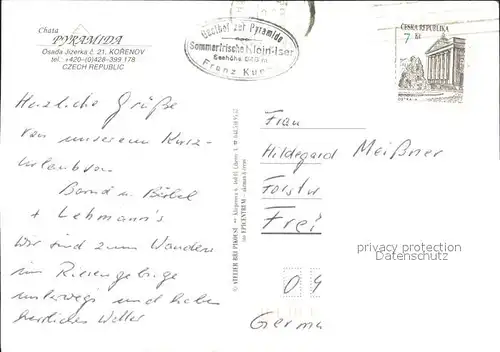 Chata
PYRAMIDA
Osada Jizerka č. 21, KOŘENOV
tel.: +420-(0)428-399 178
CZECH REPUBLIC
Gasthof zur Pyramide
Sommerfrische Klein-Iser
Seehöhe
Franz
ČESKÁ REPUBLIKA
7 Kč
Herzliche Grüße
von unserem Kurz-
urlaub von
Bernd u. Bärbel
+ Lehmann's
Wir sind zum Wandern
im Riesengebirge
unterwegs und haben
herrliches Wetter
© ATELIÉR BŘI PIKOUSŮ
pro EPICENTRUM
Frau
Hildegard Meißner
Forstw
Frei
privacy protection
Datenschutz
04
Germa